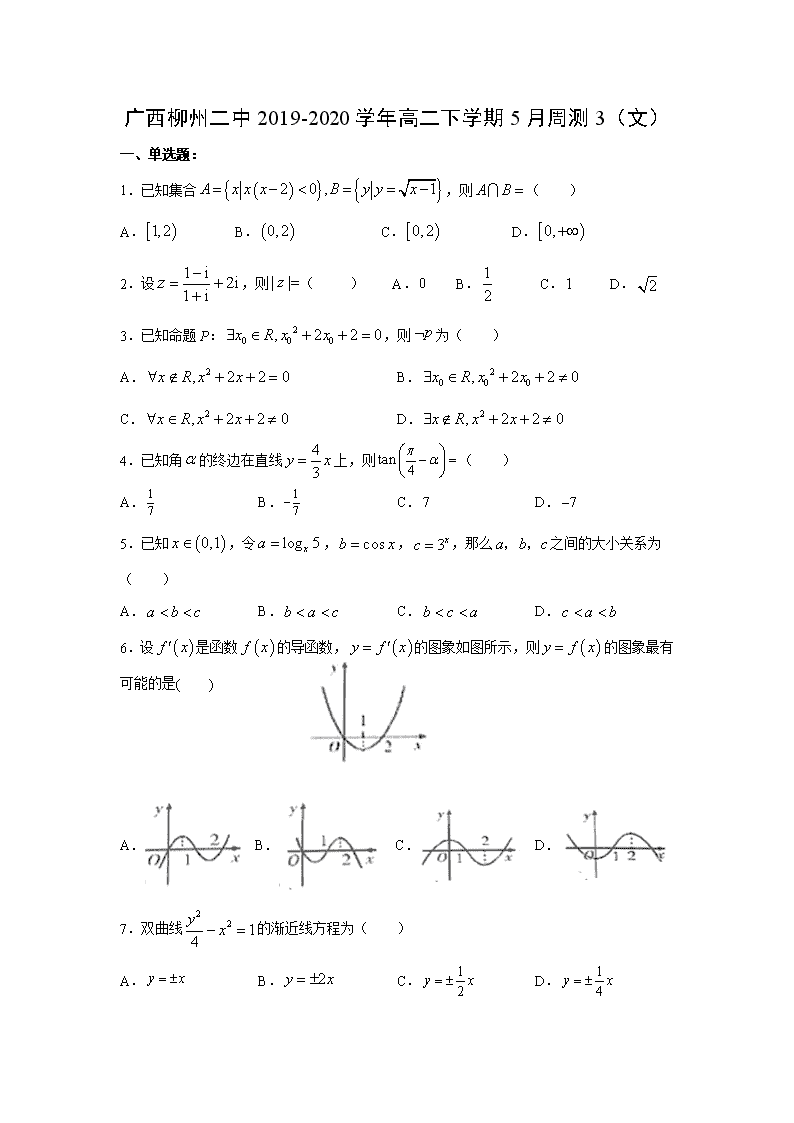 广西柳州二中 2019-2020 学年高二下学期 5 月周测 3（文）
一、单选题:
1．已知集合 A={x|x(x−2)<0},B={y|y=√(x−1)}，则 A∩B=（　　）
A．[1,2)　B．(0,2)　C．[0,2)　D．[0,+∞)
2．设 z=(1−i)/(1+i)+2i，则|z|=（　　）　A．0　B．1/2　C．1　D．√2
3．已知命题 P：∃x₀∈R,x₀²+2x₀+2=0，则 ¬p 为（　　）
A．∀x∉R,x²+2x+2=0　B．∃x₀∈R,x₀²+2x₀+2≠0
C．∀x∈R,x²+2x+2≠0　D．∃x∉R,x²+2x+2≠0
4．已知角 α 的终边在直线 y=4/3 x 上，则 tan(π/4−α)=（　　）
A．1/7　B．−1/7　C．7　D．−7
5．已知 x∈(0,1)，令 a=logₓ5，b=cos x，c=3ˣ，那么 a，b，c 之间的大小关系为
（　　）
A．a<b<c　B．b<a<c　C．b<c<a　D．c<a<b
6．设 f′(x)是函数 f(x)的导函数，y=f′(x)的图象如图所示，则 y=f(x)的图象最有
可能的是(　　)
y
1
O 2 x
A． y O 1 2 x　B． y O 1 2 x　C． y O 1 2 x　D． y O 1 2 x
7．双曲线 y²/4−x²=1 的渐近线方程为（　　）
A．y=±x　B．y=±2x　C．y=±1/2 x　D．y=±1/4 x